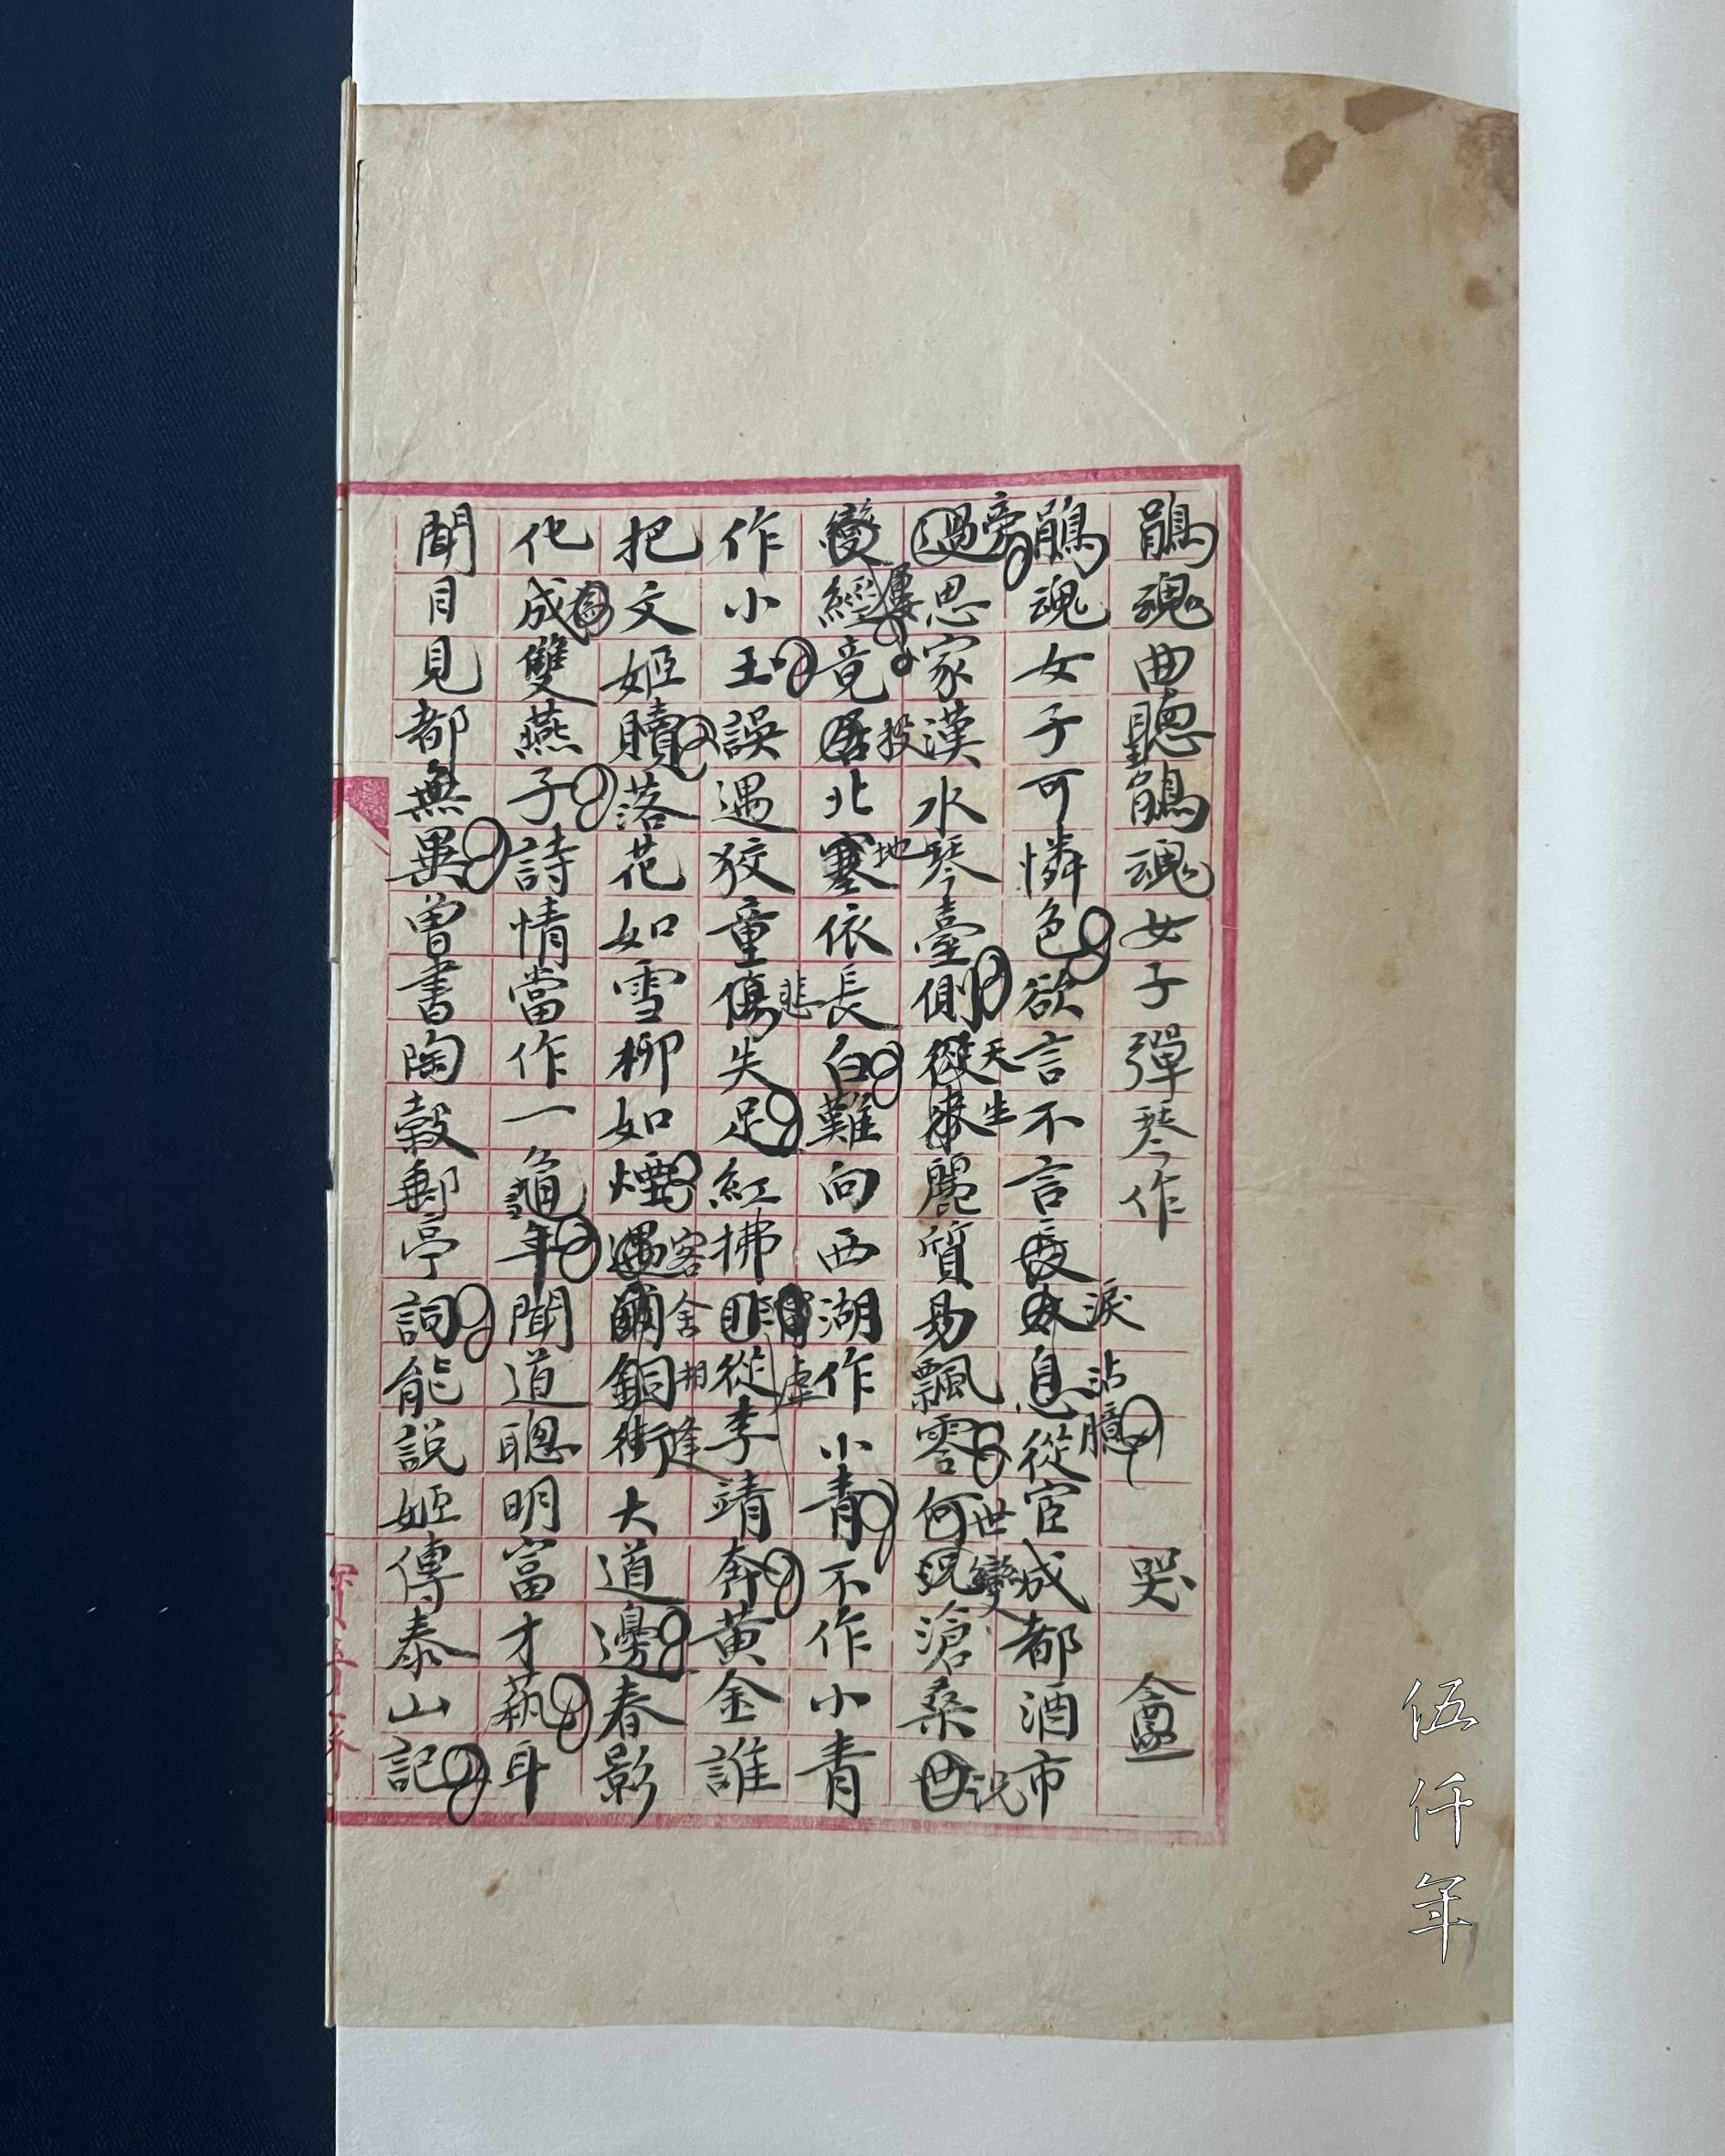 鵑魂曲聽鵑魂女子彈琴作 哭盦
鵑魂女子可憐色欲言不言長太息從宦成都酒市
淚沾臆
旁
過思家漢水琴臺側從來麗質易飄零何況滄桑世
天生
世變
況
變經竟居北塞依長白難向西湖作小青不作小青
屢
投
地
作小玉誤遇狡童傷失足紅拂從李靖奔黃金誰
悲
虛
把文姬贖落花如雪柳如煙遇銅街大道邊春影
客舍
相逢
化成雙燕子詩情當作一龜年聞道聰明富才藝耳
為
聞目見都無異曾書陶穀郵亭詞能說姬傳泰山記
伍仟年